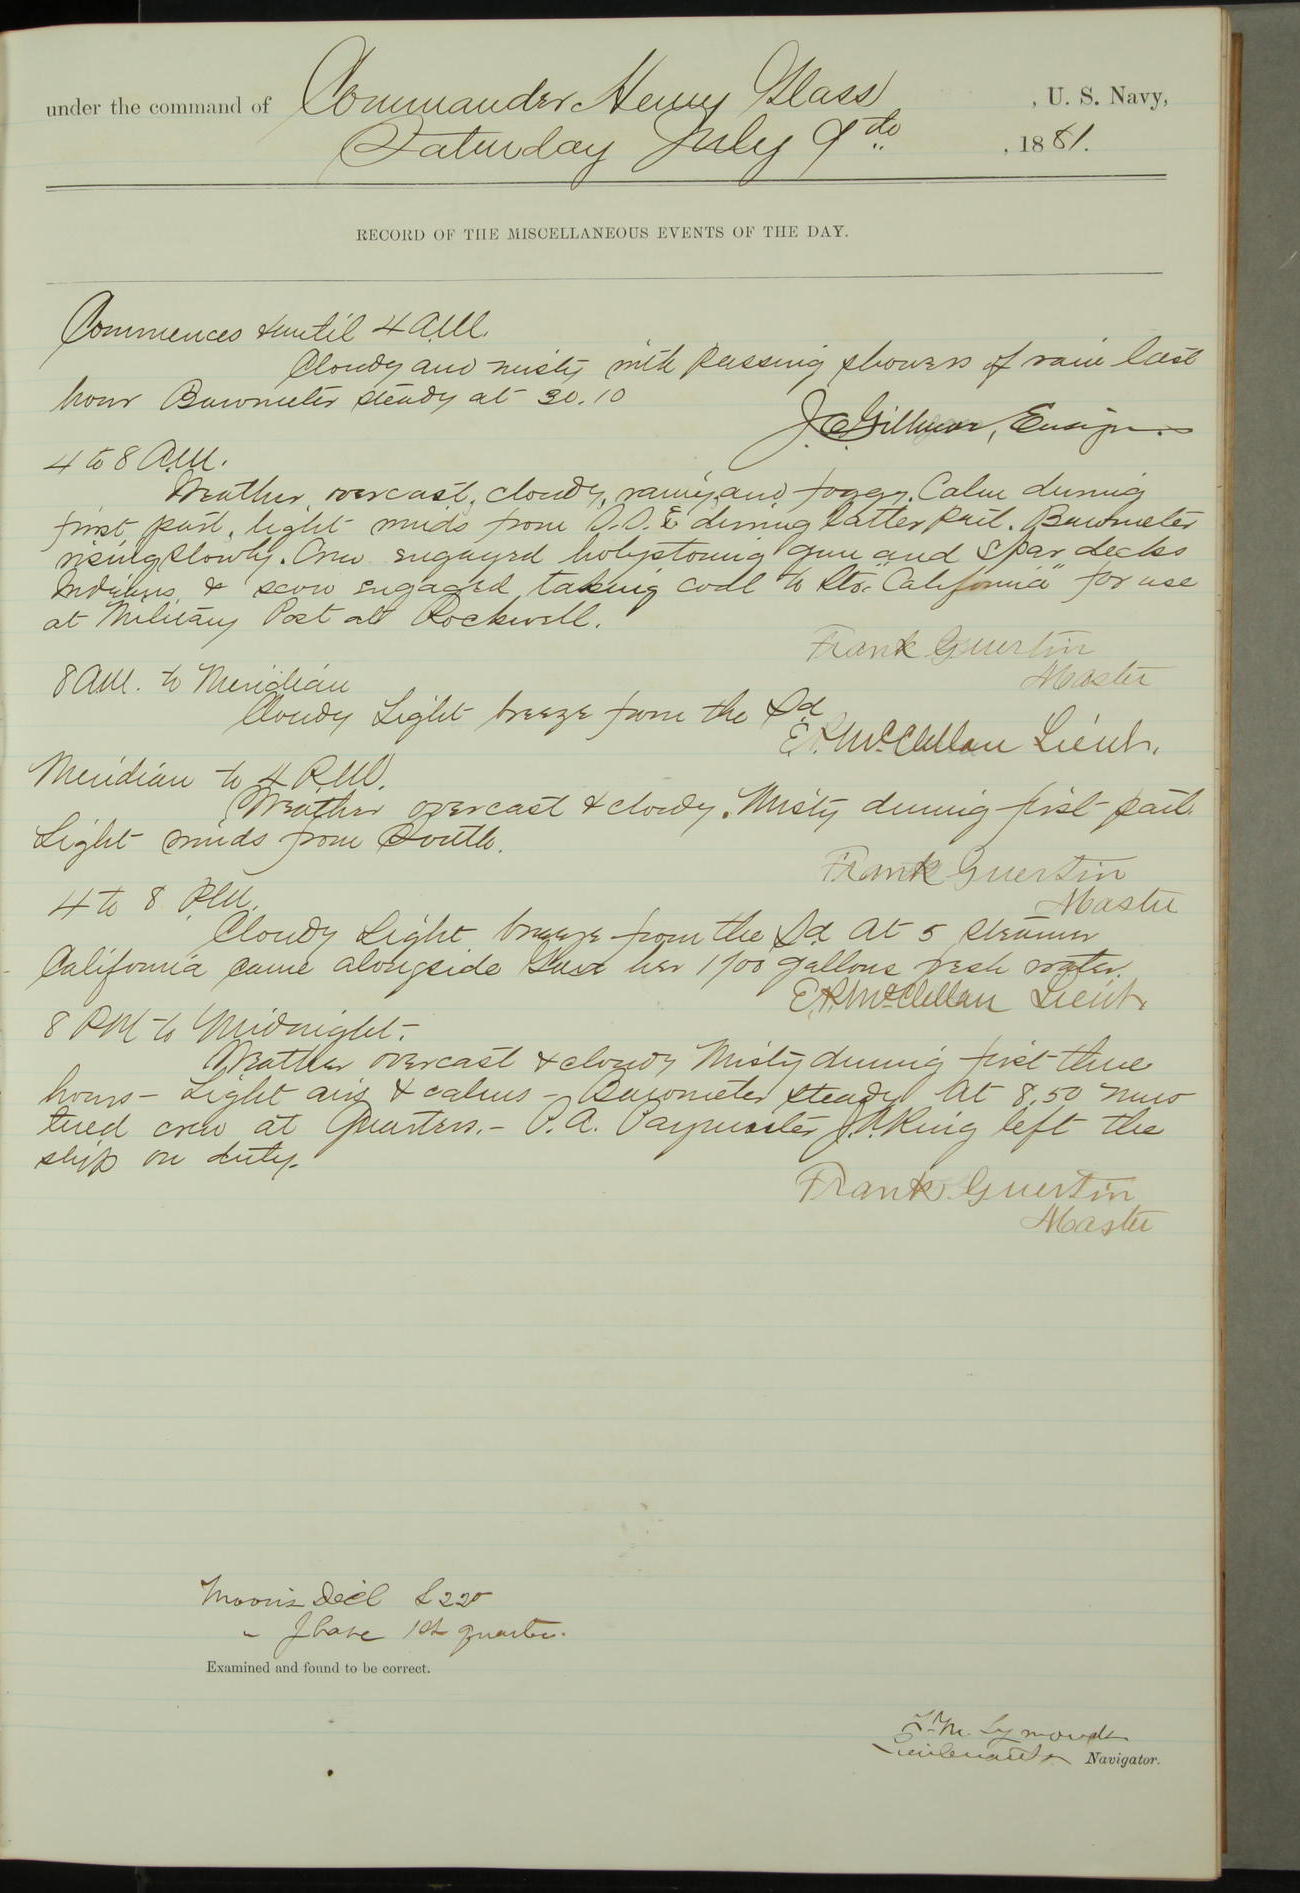 under the command of Commander Henry Glass, U. S. Navy,
Saturday July 9th, 1881.
RECORD OF THE MISCELLANEOUS EVENTS OF THE DAY.
Commences & until 4 A.M.
Cloudy and misty with passing showers of rain last
hour Barometer steady at 30.10
J.C. Gillmor, Ensign.
4 to 8 A.M.
Weather overcast, cloudy, rainy, and foggy. Calm during
first part, light winds from S.S.E during latter part. Barometer
rising slowly. Crew engaged holystoning gun and spar decks
Indians & scow engaged taking coal to Str. "California" for use
at Military Post at Rockwell.
Frank Guertin
Master
8 A.M. to Meridian
Cloudy Light breeze from the Sd
E.P. McClellan Lieut.
Meridian to 4 P.M.
Weather overcast & cloudy. Misty during first part
Light winds from South.
Frank Guertin
Master
4 to 8 P.M.
Cloudy Light breeze from the Sd. At 5 steamer
California came alongside Gave her 1700 gallons fresh water.
E.P. McClellan Lieut.
8 PM to Midnight.
Weather overcast & cloudy Misty during first three
hours - Light airs & calms - Barometer steady At 8.50 mus
tered crew at Quarters. - P.A. Paymaster J.A. Ring left the
ship on duty.
Frank Guertin
Master
Moon's Decl S 22°
" Phase 1st quarter.
Examined and found to be correct.
F.M. Symonds
Lieutenant Navigator.